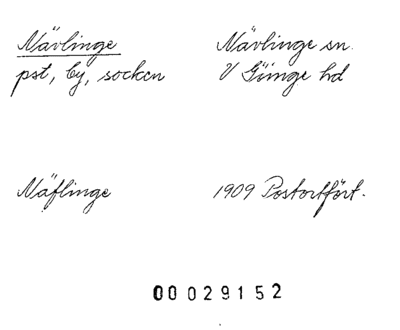 Nävlinge
Nävlinge sn
pst, by, socken
V Göinge hd
Näflinge
1909 Postortfört.
00029152